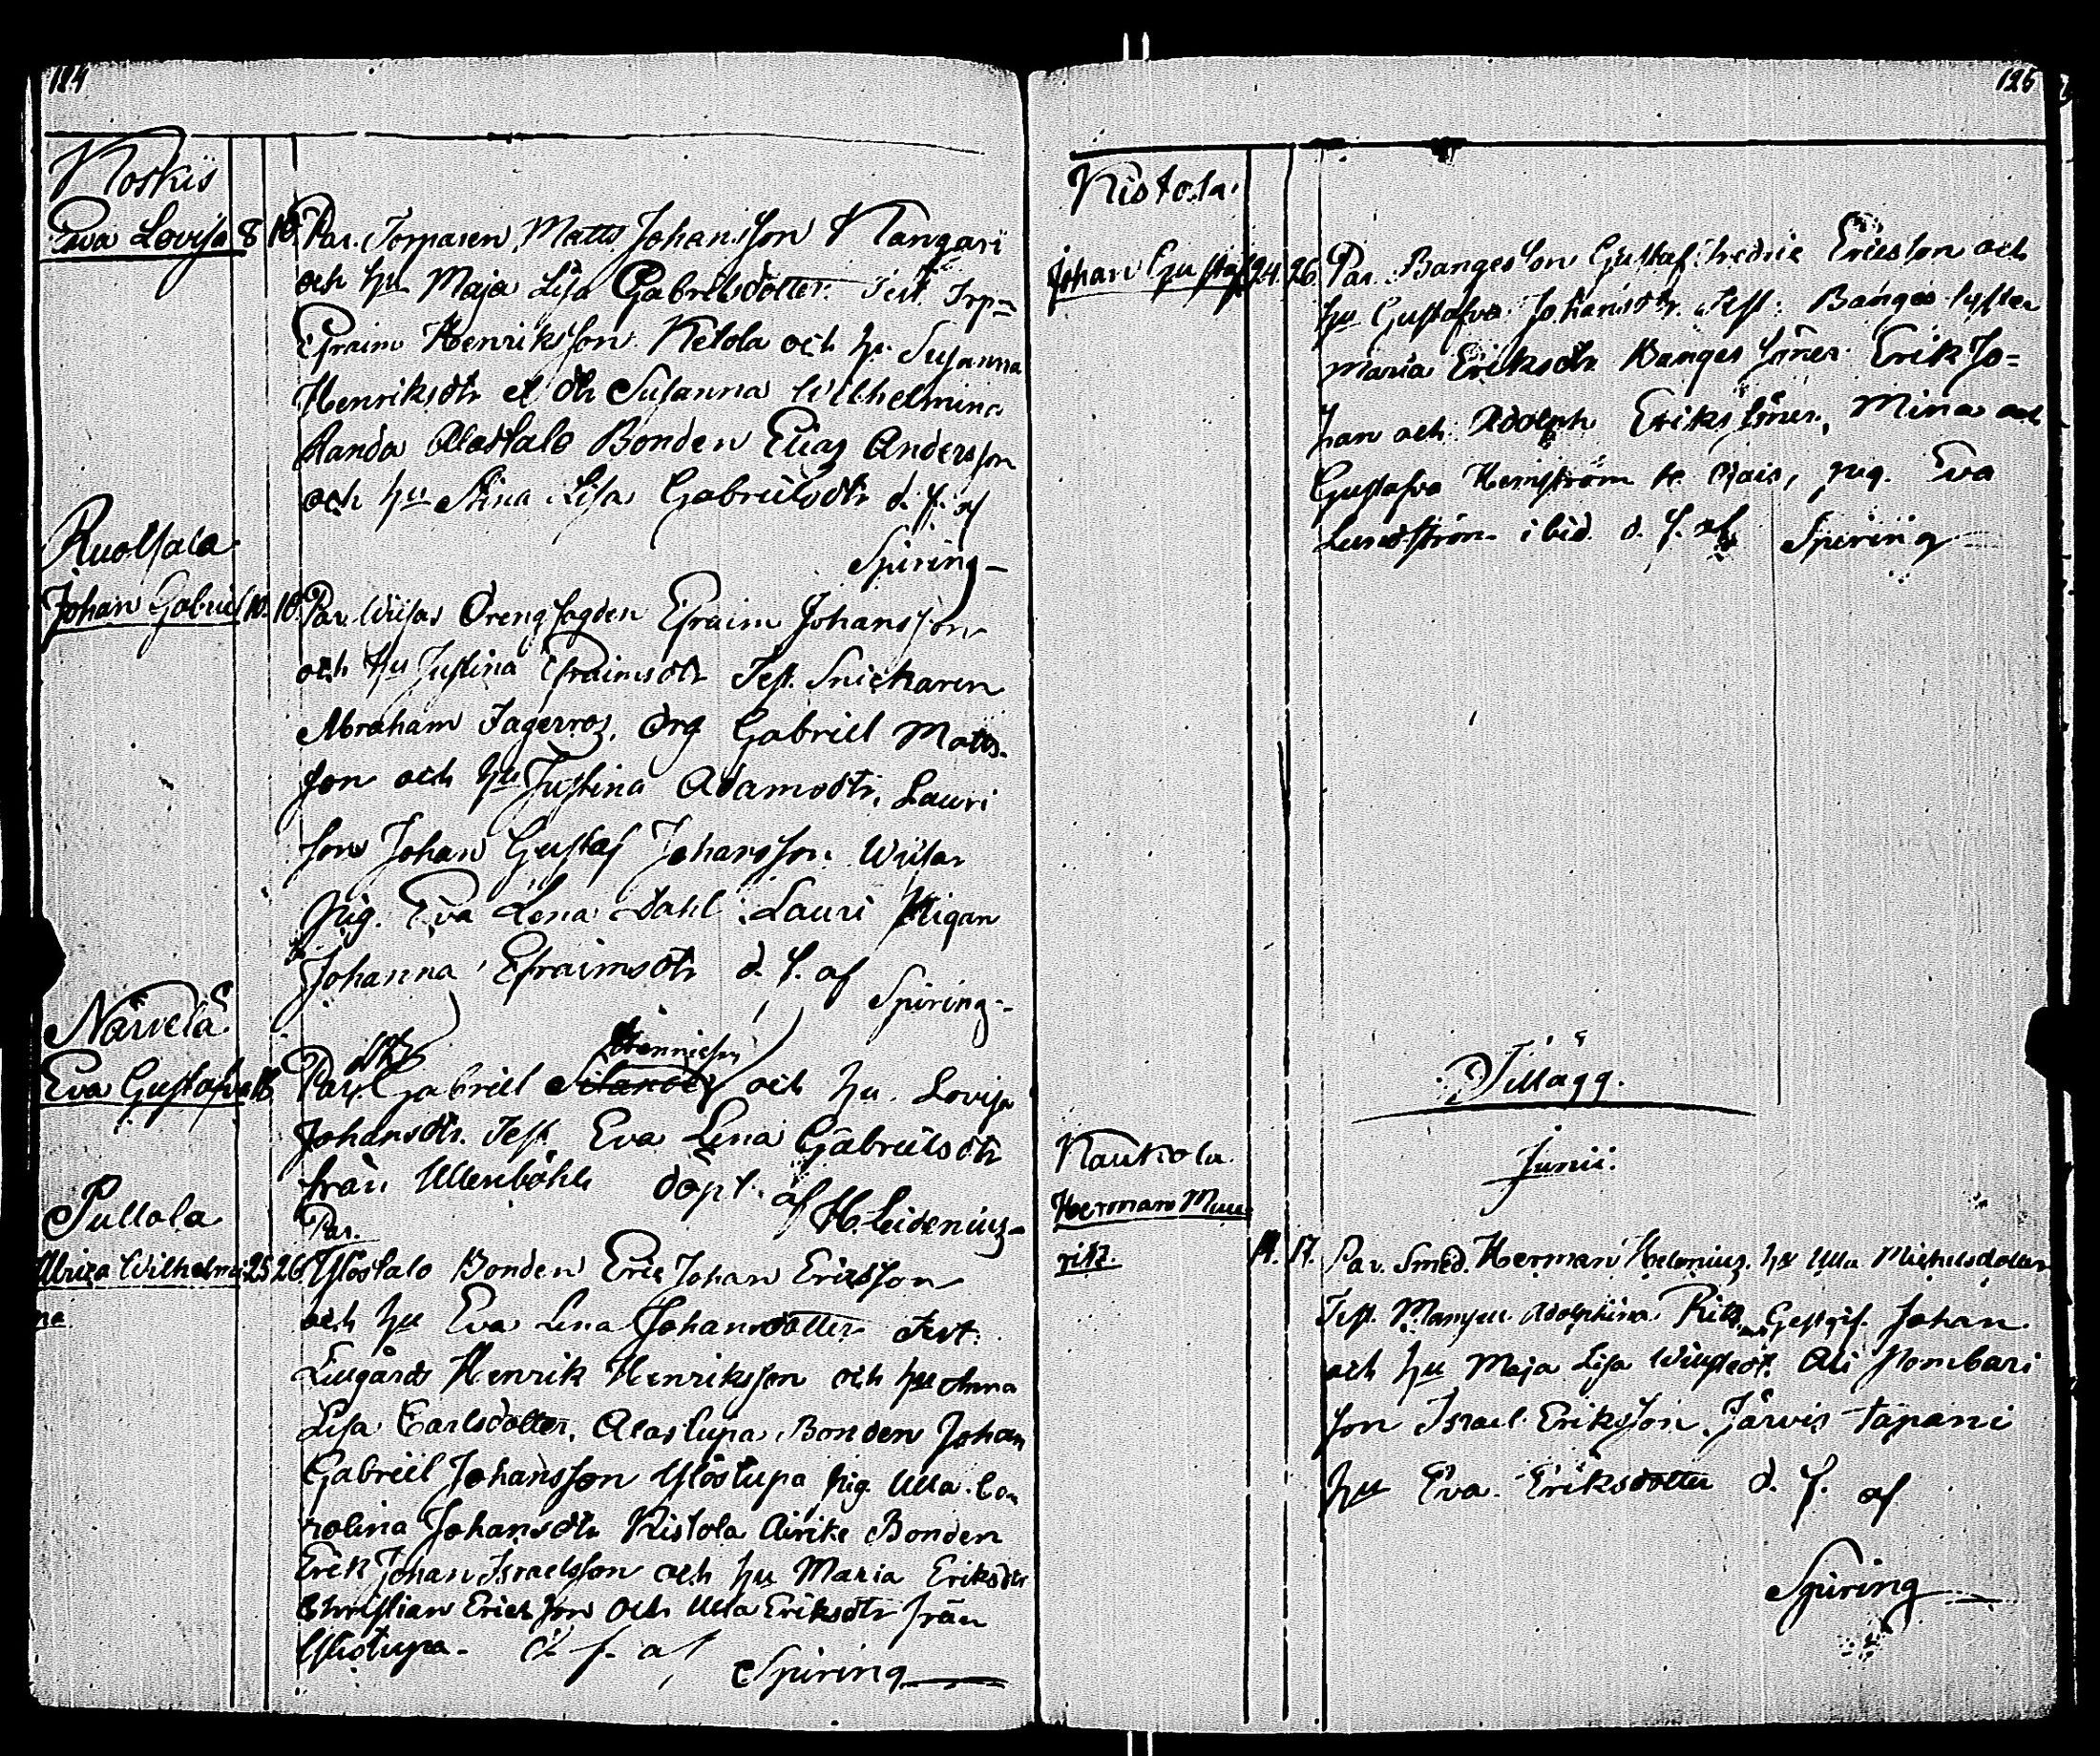 124
Koskis
Eva Lovisa 8 10. Par. Torparen Matts Johansson Kangari
och hu Maja Lisa Gabrielsdotter. Test. Trp=
Efraim Henriksson Ketola och hu Susanna
Henriksdtr et dtr Susanna Wilhelmina
Alastalo Bonden Elias Andersson
och hu Stina Lisa Gabrielsdtr d. f. af
Spiring
Johan Gabriel 10. 10. Par. Drengsagden Efraim Johansson
och hu Justina Efraimsdtr Test. Snickaren
Abraham Jagerroos, Drg Gabriell Matts-
son och hu Justina Adamsdtr. Lauri
son Johan Gustaf Johansson
pig. Eva Lena Dahl Lauri Pigan
Johanna Efraimsdtr d. f. af
Spiring
Närvelä
Eva Gustafva Par. Gabriell och hu. Lovisa
Johansdtr. Test Eva Lena Gabrielsdtr
från döpt. af H. Leidenius
Pullola
Par.
Ulrica Wilhelmi 25 26. Ylöstalo Bonden Eric Johan Ericsson
na
och hu Eva Lena Johansdotter Test.
Henrik Henriksson och hu Anna
Lisa Carlsdotter, Alastupa Bonden Johan
Gabriel Johansson Ylöstupa pig. Ulla Ca-
rolina Johansdtr Kistola Airike Bonden
Erik Johan Israelsson och hu Maria Eriksdtr
Christian Ericsson och Ulla Eriksdtr från
Ylöstupa. d. f. af Spiring
125
Kistola.
Johan Gustaf 24. 26. Par. Bangesson Gustaf Fredric Ericsson och
hu Gustafva Johansdtr. Test: Banges
Maria Eriksdtr Banges söner Erik Jo=
han och Adolph Eriks söner, Mina och
Gustafva pig. Eva
Lundström ibid. d. f. af Spiring
Tillägg.
Junii.
Kaukola.
Herman Mau-
ritz. 17. Par. Smed. Herman Helenius. hu Ulla Michelsdotter
Test. Adolphina Gestgif. Johan
och hu Maja Lisa
son Israel Eriksson. Järvis Tapani
hu Eva Eriksdotter d. f. af
Spiring